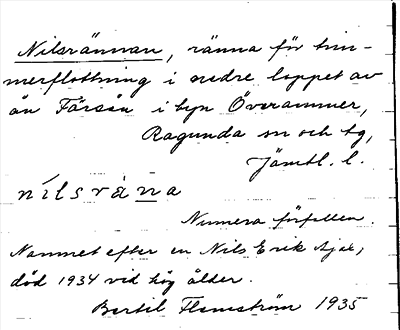 Nilsrännan, ränna för tim-
merflottning i nedre loppet av
ån Färsån i byn Överammer,
Ragunda sn och tg,
Jämtl. l.
nílsràna
Numera förfallen.
Namnet efter en Nils Erik
död 1934 vid hög ålder.
Bertil Flemström 1935